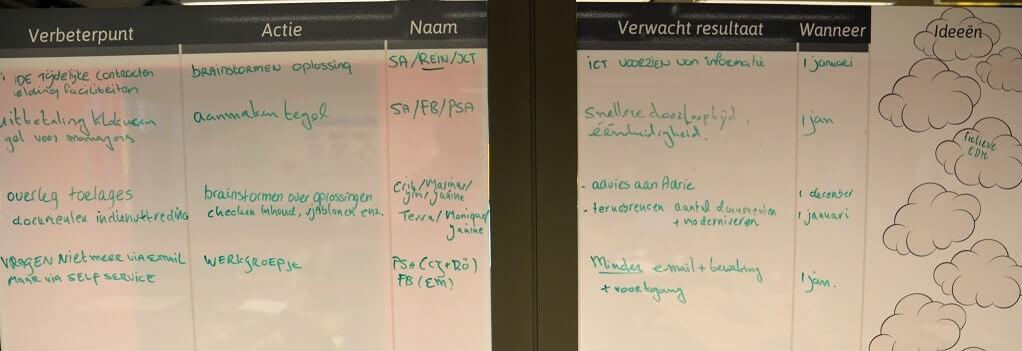 Verbeterpunt Actie Naam Verwacht resultaat Wanneer Ideeën
IDE Tijdelijke contracten BRAINSTORMEN OPLOSSING SA/REIN/JCT ICT VOORZIEN van informatie 1 januari
elding faciliteiten
uitbetaling klokuren aanmaken tegel SA/FB/PSA Snellere doorlooptijd, 1 jan
gel voor managers éénduidigheid.
fictieve
EDM
overleg toelages brainstormen over oplossingen Erik/Marina/ - advies aan Adrie 1 december
Janine
documenten indiensttreding checken inhoud, sjablonen enz. Terra/Monique/ - terugbrengen aantal documenten 1 januari
Janine + moderniseren
VRAGEN Niet meer via EMail WERKGROEPJE PSA (CZ+RÖ) Minder email + bewaking 1 jan.
MAAR VIA SELF SERVICE FB (EM) + voortgang